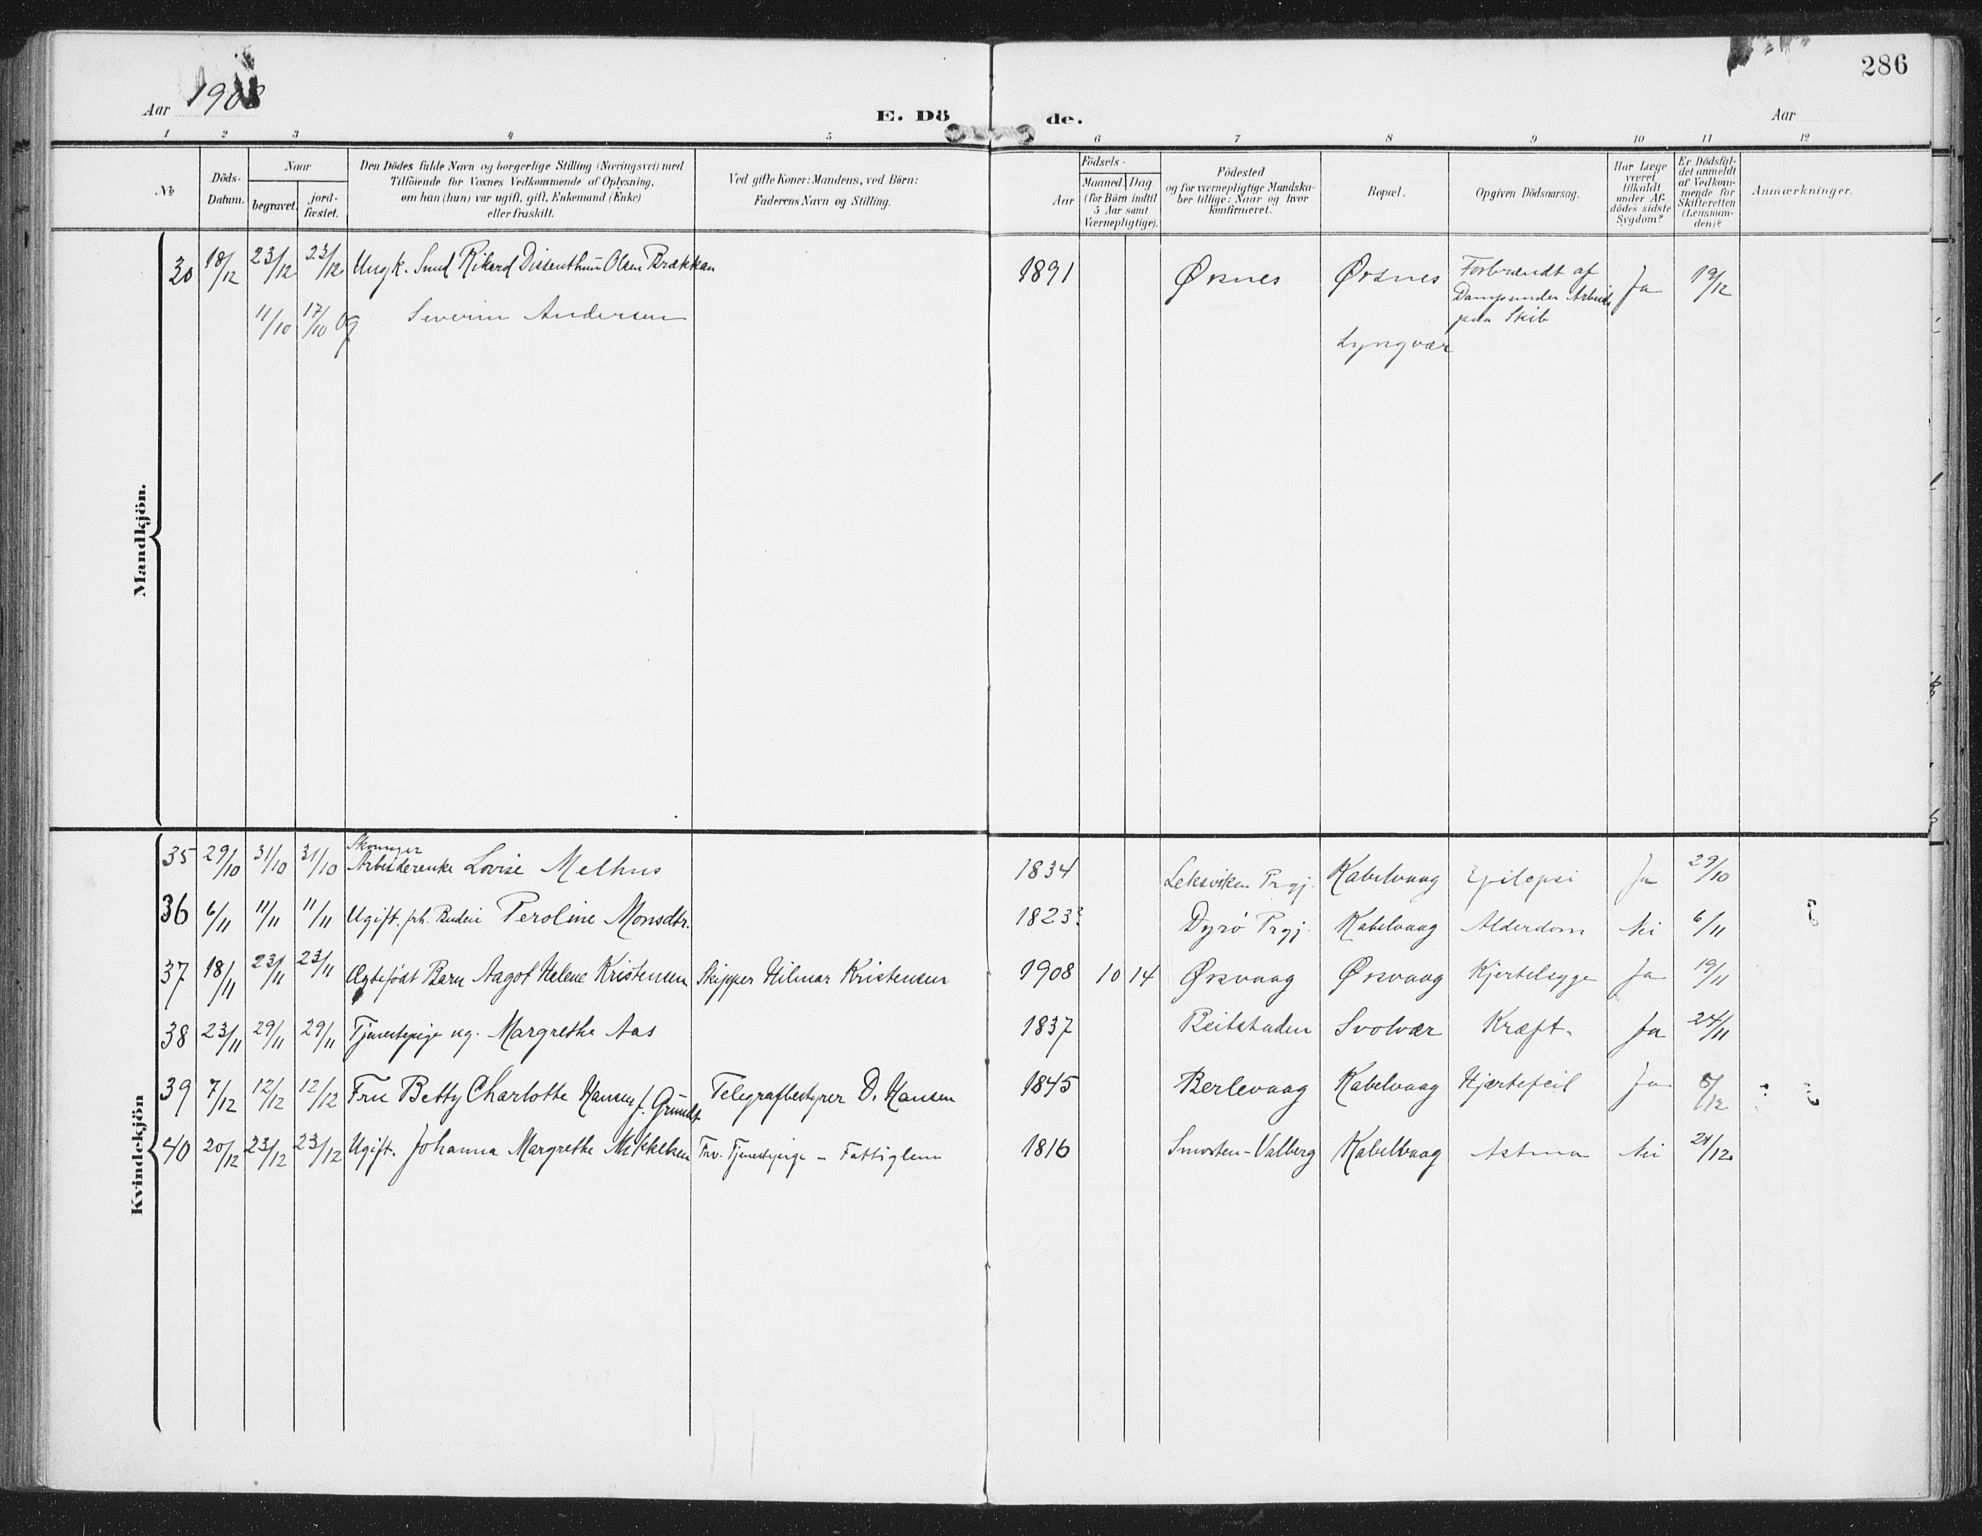 286
Aar 1908
E. Döde.
Aar
1 2 3 4 5 6 7 8 9 10 11 12
№
Döds-Datum.
Naar
begravet.
jord-fæstet.
Den Dödes fulde Navn og borgerlige Stilling (Næringsvei) med
Tilföiende for Voxnes Vedkommende af Oplysning,
om han (hun) var ugift, gift, Enkemand (Enke)
eller fraskilt.
Ved gifte Koner: Mandens, ved Börn:
Faderens Navn og Stilling.
Födsels-
Aar
Maaned. Dag
(for Börn indtil
5 Aar samt
Værnepligtige).
Födested
og for værnepligtige Mandska-
ber tillige: Naar og hvor
konfirmeret.
Bopæl.
Opgiven Dödsaarsag.
Har Læge
været
tilkaldt
under Af-
dödes sidste
Sygdom?
Er Dödsfal-
det anmeldt
af Vedkom-
mende for
Skifteretten
(Lensman-
den)?
Anmærkninger.
Mandkjön.
30 18/12 23/12 23/12 Ungk. Smed Rikard Olsen Brækkan 1891 Ørsnes Ørsnes Forbrændt af Ja 19/12
Damp under Arbeide
paa Skib
11/10 17/10 og Severin Andersen
Lyngvær
Kvindekjön
Arbeiderenke
35 29/10 31/10 31/10 Lovise Melhus 1834 Leksviken Prgj. Kabelvaag Epilepsi Ja 29/10
36 6/11 11/11 11/11 Ugift. frh. Budeie Peroline Monsdtr. 1823? Dyrø Prgj. Kabelvaag Alderdom Nei 6/11
37 18/11 23/11 23/11 Ægtefødt Barn Aagot Helene Kristensen Skipper Hilmar Kristensen 1908 10 14 Ørsvaag Ørsvaag Kjertelsyge Ja 19/11
38 23/11 29/11 29/11 Tjenestepige ug. Margrethe Aas 1837 Beitstaden Svolvær Kræft. Ja 24/11
39 7/12 12/12 12/12 Fru Betty Charlotte Hansen f. Gründt Telegrafbestyrer D. Hansen 1845 Berlevaag Kabelvaag Hjertefeil Ja 8/12
40 20/12 23/12 23/12 Ugift. Johanna Margrethe Mikkelsen Frv. Tjenestepige - Fattiglem 1816 Smorten-Valberg Kabelvaag Astma Nei 21/12